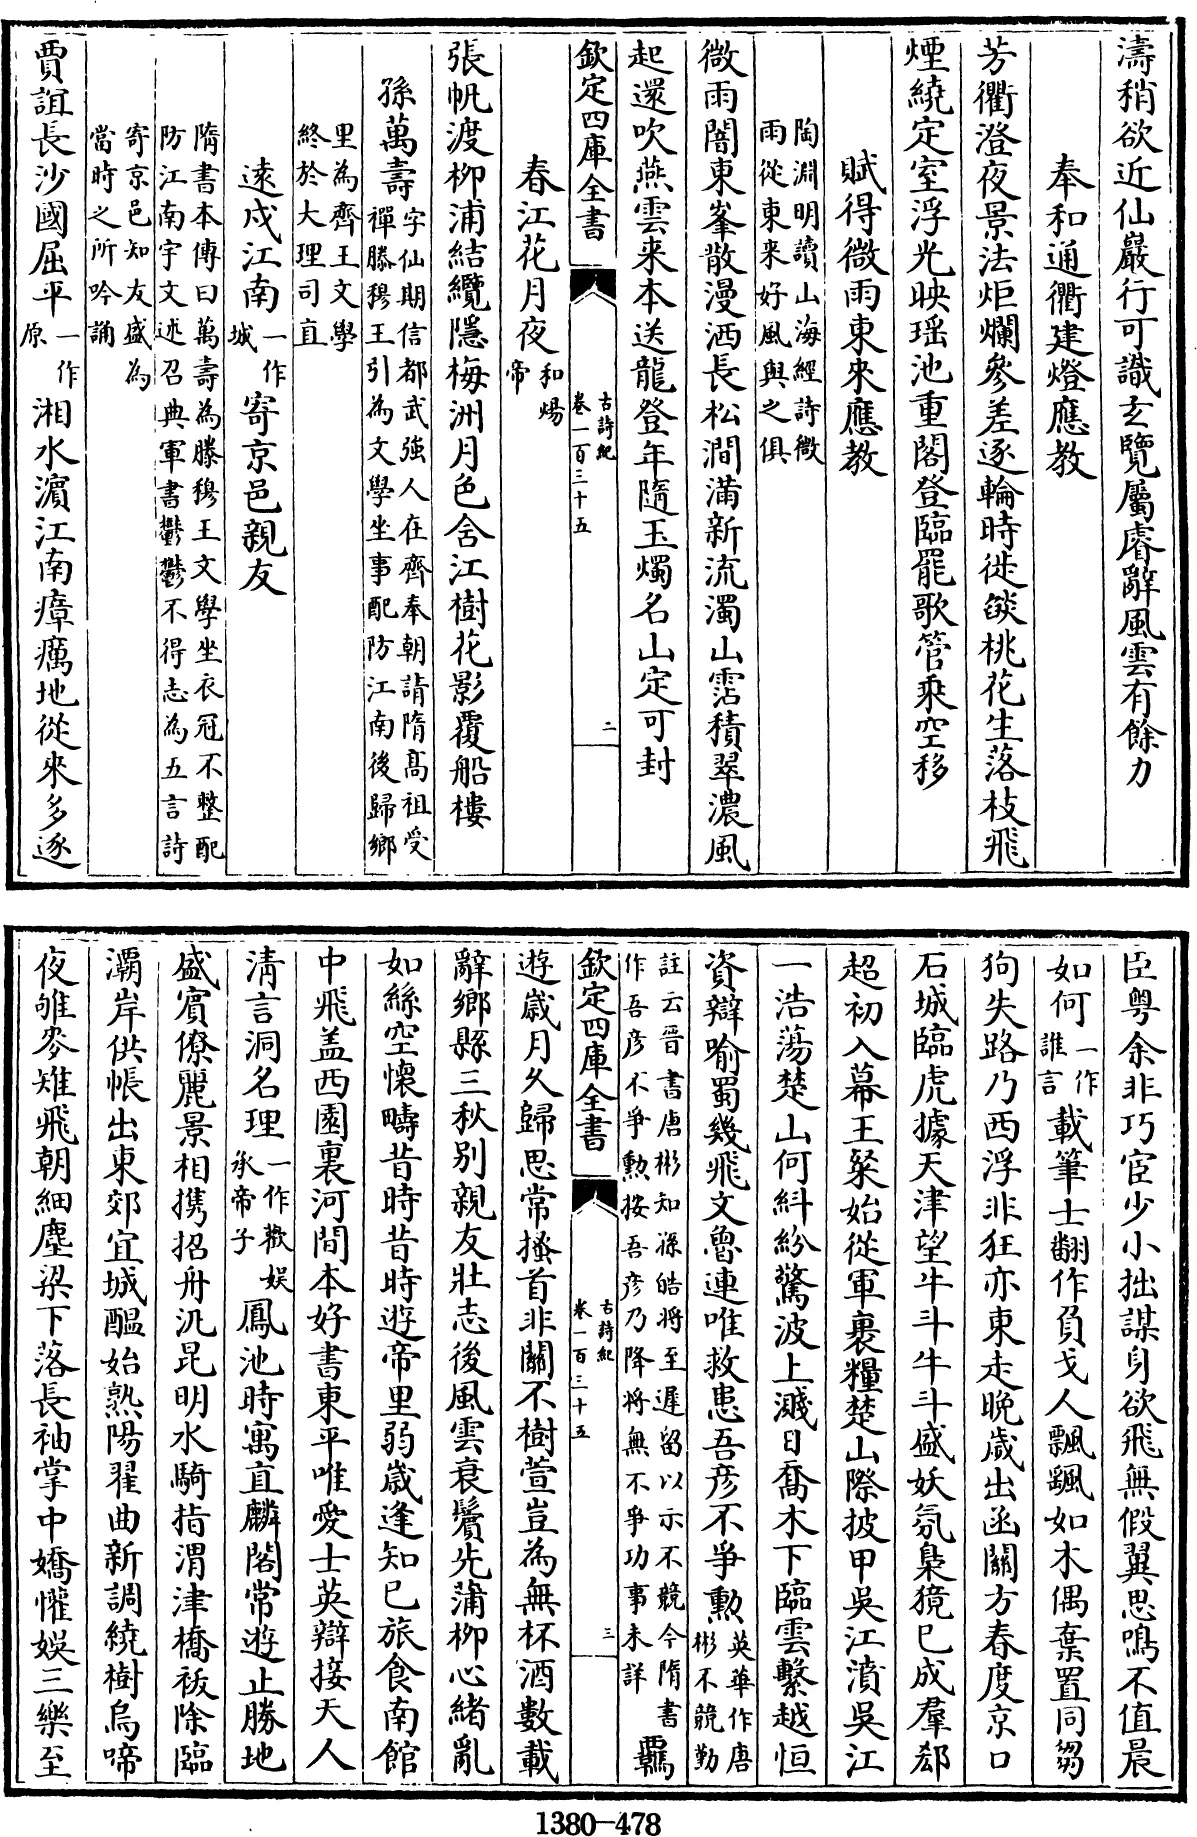 濤稍欲近仙巖行可識玄覽屬睿辭風雲有餘力
奉和通衢建燈應教
芳衢澄夜景法炬爛參差逐輪時徙燄桃花生落枝飛
煙繞定室浮光映瑶池重閣登臨罷歌管乘空移
賦得微雨東來應教
陶淵明讀山海經詩微
雨從東來好風與之俱
微雨闇東峯散漫洒長松澗滿新流濁山霑積翠濃風
起還吹燕雲来本送龍登年隨玉燭名山定可封
欽定四庫全書
古詩紀
卷一百三十五
二
春江花月夜
和煬
帝
張帆渡柳浦結纜隱梅洲月色含江樹花影覆船樓
孫萬壽
字仙期信都武強人在齊奉朝請隋髙祖受
禪滕穆王引為文學坐事配防江南後歸鄉
里為齊王文學
終於大理司直
逺戍江南
一作
城
寄京邑親友
隋書本傳曰萬壽為滕穆王文學坐衣冠不整配
防江南宇文述召典軍書鬱鬱不得志為五言詩
寄京邑知友盛為
當時之所吟誦
賈誼長沙國屈平
一作
原
湘水濵江南瘴癘地從來多逐
臣粤余非巧宦少小拙謀身欲飛無假翼思鳴不值晨
如何
一作
誰言
載筆士翻作負戈人飄飄如木偶棄置同芻
狗失路乃西浮非狂亦東走晚歲出函關方春度京口
石城臨虎據天津望牛斗牛斗盛妖氛梟獍已成羣郄
超初入幕王粲始從軍裹糧楚山際披甲吳江濆吳江
一浩蕩楚山何糾紛驚波上濺日喬木下臨雲繫越恒
資辯喻蜀幾飛文魯連唯救患吾彦不爭勲
英華作唐
彬不競勤
註云晋書唐彬知孫皓將至遲留以示不競今隋書
作吾彦不爭勲按吾彦乃降将無不爭功事未詳
羈
欽定四庫全書
古詩紀
卷一百三十五
三
遊歲月久歸思常搔首非關不樹萱豈為無杯酒數載
辭鄉縣三秋别親友壯志後風雲衰鬢先蒲柳心緒亂
如絲空懷疇昔時昔時遊帝里弱歲逢知己旅食南館
中飛盖西園裏河間本好書東平唯愛士英辯接天人
清言洞名理
一作歡娱
承帝子
鳳池時寓直麟閣常遊止勝地
盛賓僚麗景相携招舟汎昆明水騎指渭津橋祓除臨
灞岸供帳出東郊宜城醖始熟陽翟曲新調繞樹烏啼
夜雊麥雉飛朝細塵梁下落長袖掌中嬌懽娱三樂至
1380-478